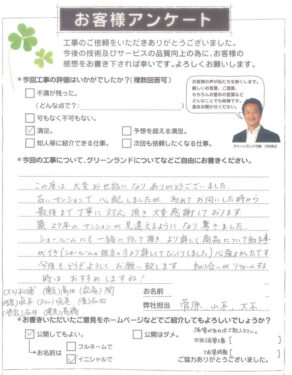 お客様アンケート
工事のご依頼をいただきありがとうございました。
今後の技術及びサービスの品質向上の為に、お客様の
感想をお書き下されば幸いです。よろしくお願いします。
●今回工事の評価はいかがでしたか?(複数回答可)
不満が残った。
(どんな点で?:
可もなく不可もなく。
満足。
予想を超える満足。
知人等に紹介できる仕事。
次回も依頼したくなる仕事。
お客様の声が私たちを強くします。
●今回の工事について、グリーンランドについてなどご自由にお書きください。
この度は大変お世話になりありがとうございました。
古いマンションで心配しましたが、初めてお伺いした時から
最後まで丁寧に対応頂き大変感謝しております。
築27年のマンションが見違えるようになり驚きました。
ショールームにも一緒に行って頂き、より詳しく商品について知る事
ができ(ショールームの担当の方より詳しくてびっくりしました)心強かったです
今後もどうぞよろしくお願い致します 知り合いがリフォームする
時はおすすめしますね!
お名前
弊社担当
菅原、山本、大工
●お書きいただいたご意見をホームページなどでご紹介してもよろしいでしょうか?
公開してもよい。
公開はダメ。
→お名前は
フルネームで
イニシャルで
ご協力ありがとうございました。